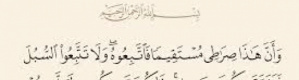 بِسْمِ ٱللَّهِ ٱلرَّحْمَٰنِ ٱلرَّحِيمِ
وَأَنَّ هَٰذَا صِرَٰطِى مُسْتَقِيمًا فَٱتَّبِعُوهُ ۖ وَلَا تَتَّبِعُوا۟ ٱلسُّبُلَ